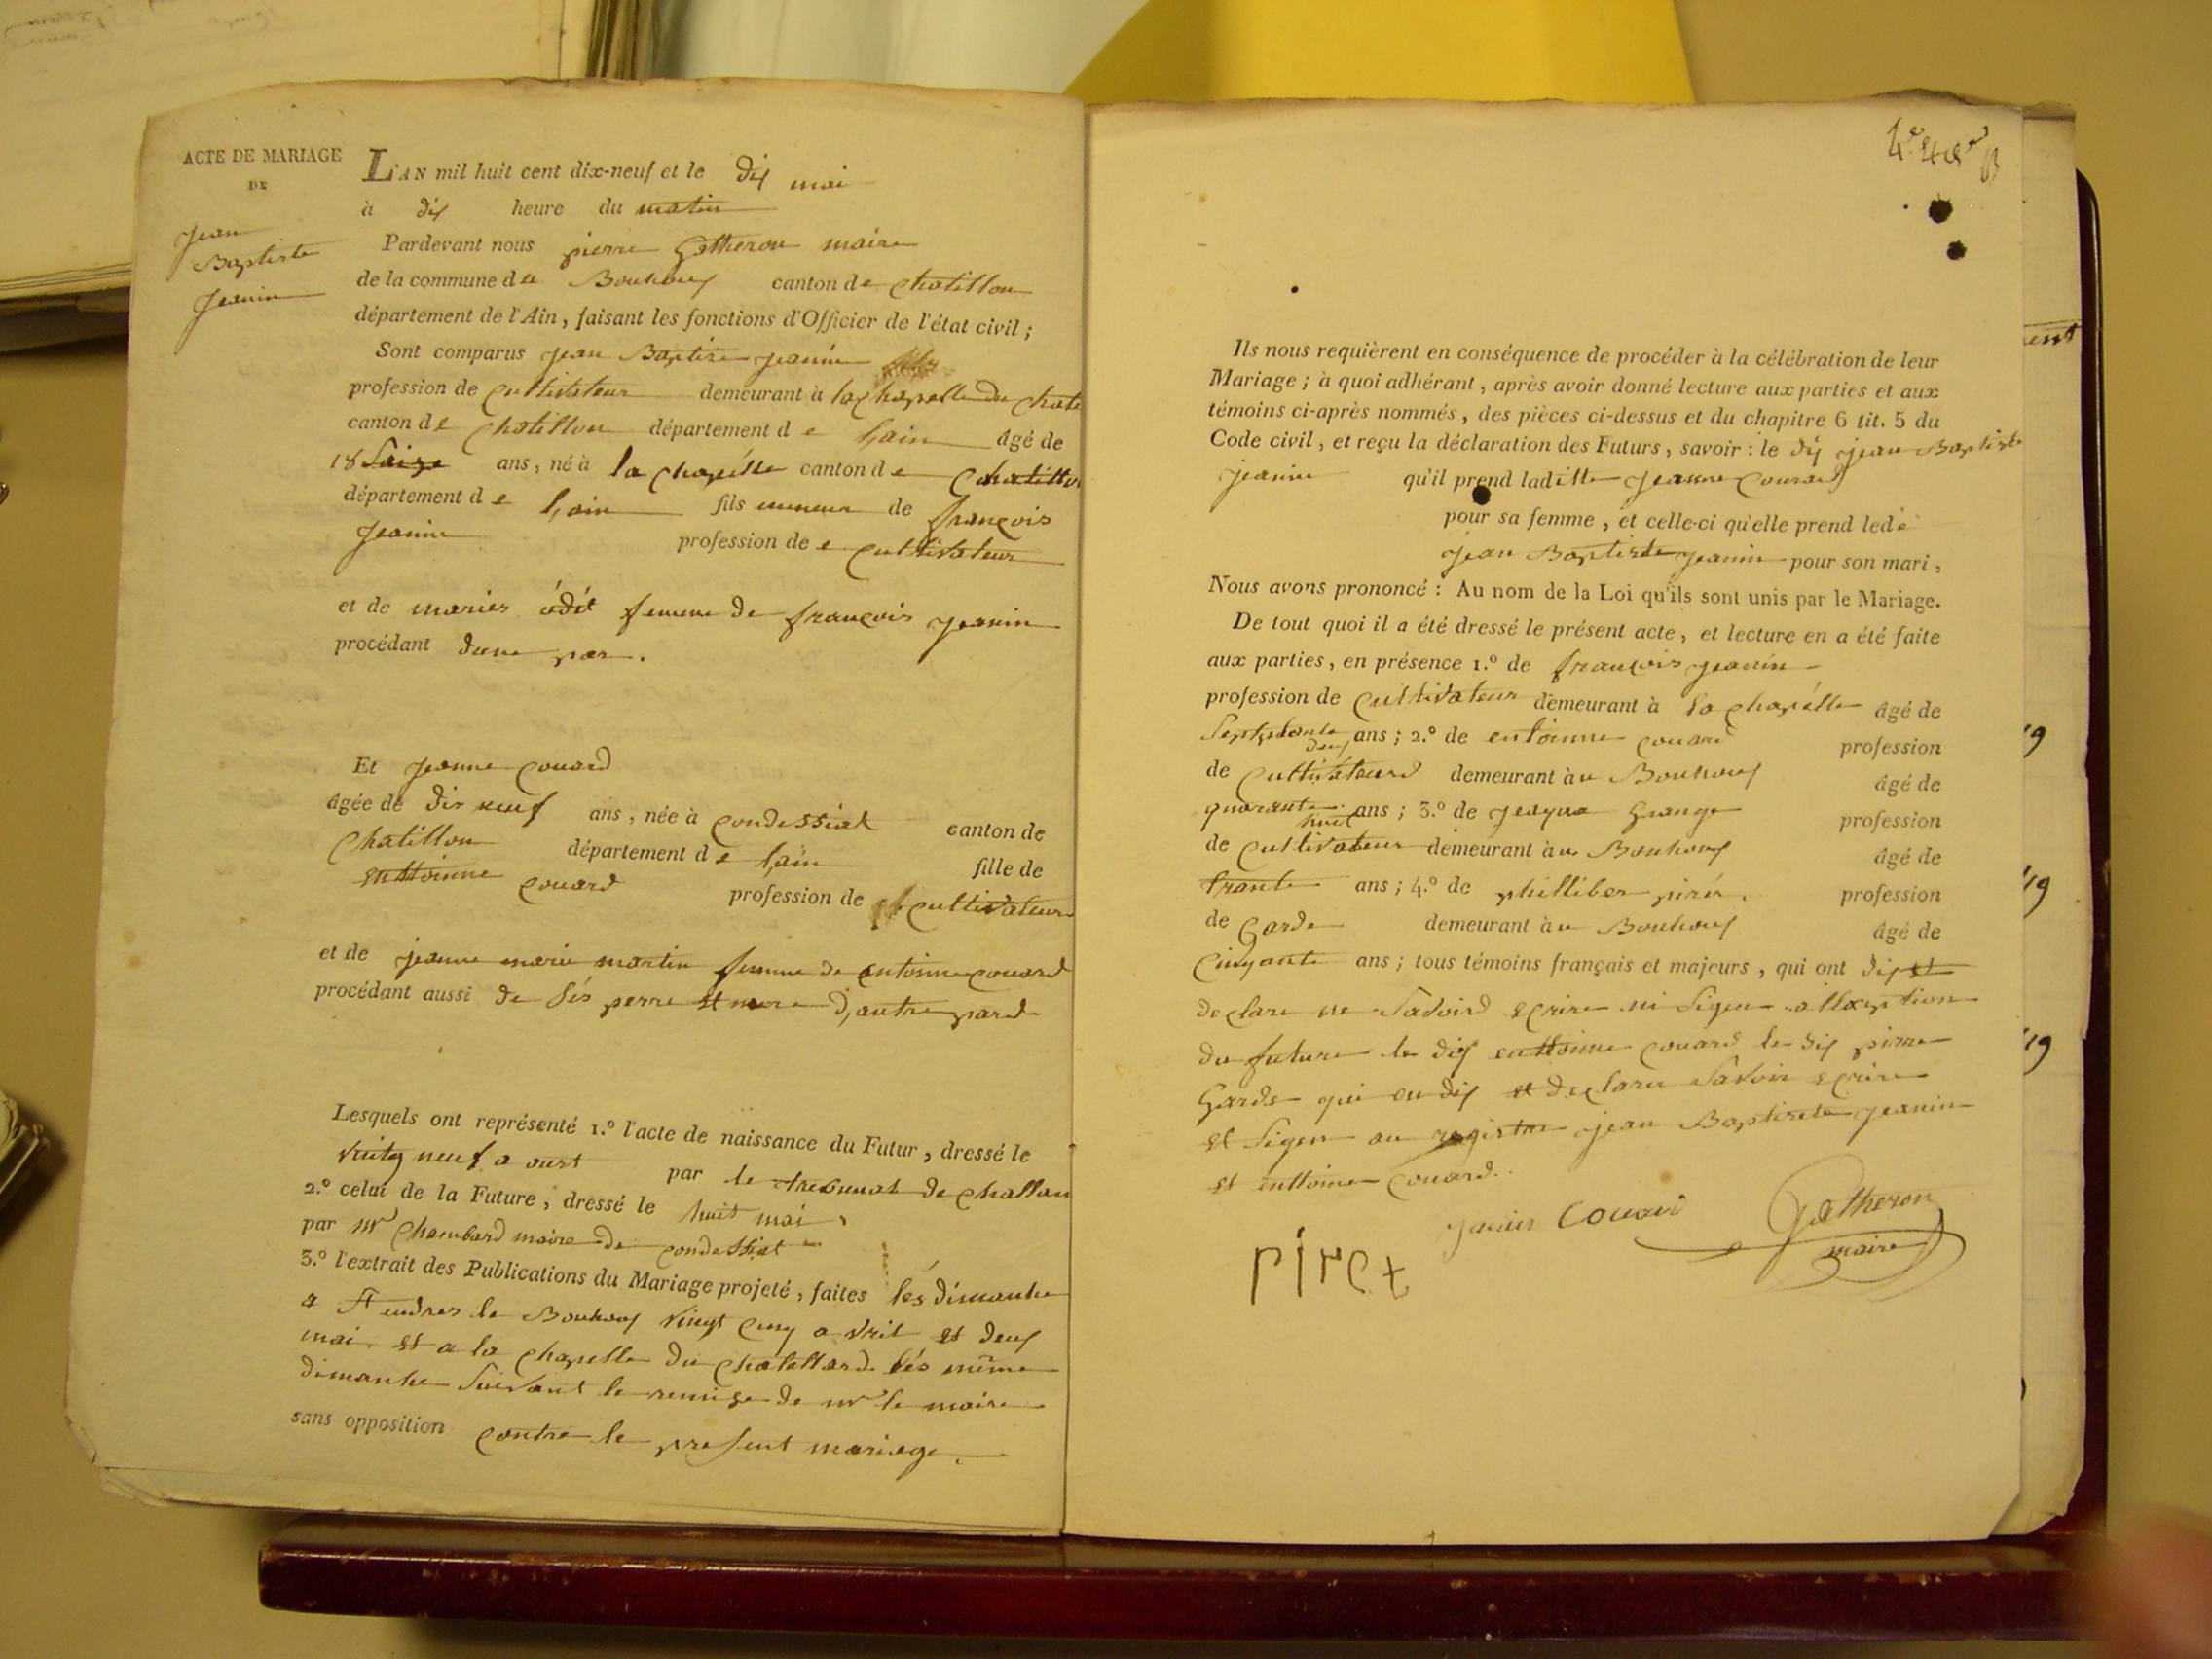 ACTE DE MARIAGE
DE
Jean
Baptiste
Jeanin
L'AN mil huit cent dix-neuf et le dix mai
à dix heure du matin
Pardevant nous pierre Gatheron maire
de la commune du Bouhoux canton de chatillon
département de l'Ain, faisant les fonctions d'Officier de l'état civil ;
Sont comparus jean Baptiste jeanin
profession de cultivateur demeurant à la chapelle du chate
canton de chatillon département de l,ain âgé de
18 ans, né à la chapélle canton de chatillon
département de l,ain fils mineur de françois
Jeanin profession de e cultivateur
et de maries òdét femme de françois jeanin
procédant dune par.
Et Jeanne couard
âgée de dix neuf ans, née à condessiat canton de
chatillon département de lain fille de
enttoinne couard profession de cultivateur
et de jeanne marie martin femme de entoinne couard
procédant aussi de sés perre et mere d,autre pard
Lesquels ont représenté 1.º l'acte de naissance du Futur, dressé le
vintg neuf a oust par le trebunal de
2.º celui de la Future, dressé le huit mai,
par mr chambard maire de condessiat
3.º l'extrait des Publications du Mariage projeté, faites lés dimanhe
a St endres le Bouhoux vingt cinq a vril et deux
mai et a la chapelle du chatellard lés même
dimanhe suivant le remise de mr le maire
sans opposition contre le present mariage.
Ils nous requièrent en conséquence de procéder à la célébration de leur
Mariage ; à quoi adhérant, après avoir donné lecture aux parties et aux
témoins ci-après nommés, des pièces ci-dessus et du chapitre 6 tit. 5 du
Code civil, et reçu la déclaration des Futurs, savoir : le dij jean Baptiste
jeanin qu'il prend laditte Jeanne couard
pour sa femme, et celle-ci qu'elle prend ledé
jean Baptiste jeanin pour son mari,
Nous avons prononcé : Au nom de la Loi qu'ils sont unis par le Mariage.
De tout quoi il a été dressé le présent acte, et lecture en a été faite
aux parties, en présence 1.º de françois jeanin
profession de cultivateur demeurant à la chapélle âgé de
deux ans ; 2.º de entoinne couard profession
de cultivateurd demeurant àu Bouhoux âgé de
quarante huit ans ; 3.º de jeaque Grange profession
de cultivateur demeurant àu Bouhoux âgé de
trante ans ; 4.º de philliber pirér profession
de Garde demeurant àu Bouhoux âgé de
cinqante ans ; tous témoins français et majeurs, qui ont dij et
declare ne savoird ecrire ni signer a llexption
du future le dij enttoinne couard le dij pirre
Garde qui on dij et declaru savoir ecrire
et signer au registre jean Baptiste jeanin
et enttoine couard.
Couard
Gatheron
maire
pirex